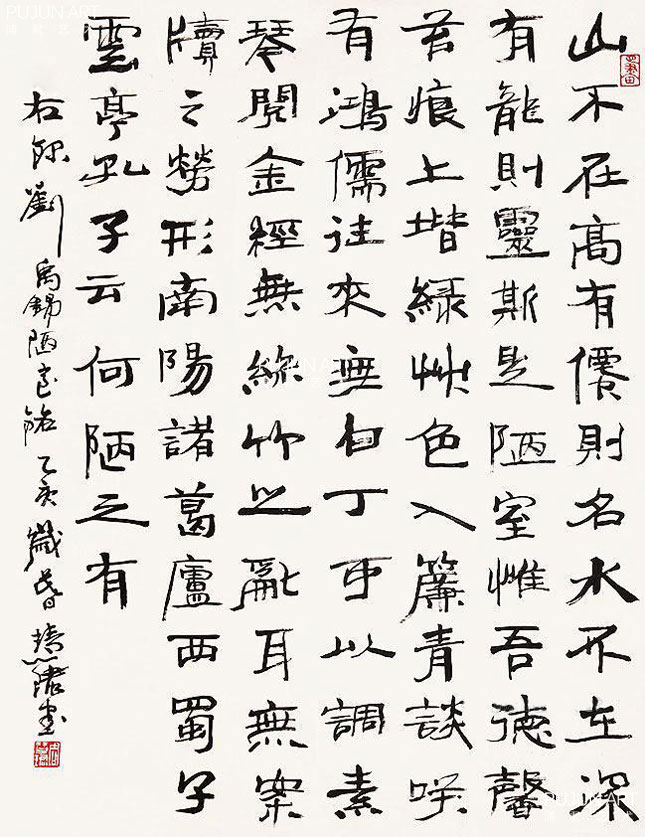 PUJUN ART
山不在高有僊則名水不在深
有龍則靈斯是陋室惟吾德馨
苔痕上堦綠艸色入簾青談咲
有鴻儒往來無白丁可以調素
琴閱金經無絲竹之亂耳無案
牘之勞形南陽諸葛廬西蜀子
雲亭孔子云何陋之有
右錄劉禹錫陋室銘乙亥歲暮
PUJUN ART